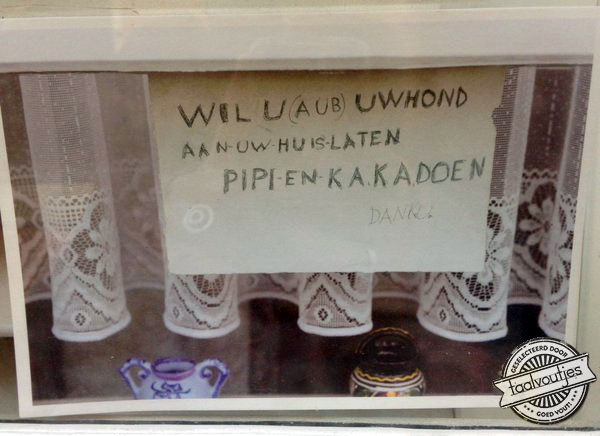 WIL U (AUB) UW HOND
AAN-UW-HUIS-LATEN
PIPI-EN-KAKADOEN
DANK!
GESELECTEERD DOOR
taalvoutjes
GOED VOUT!